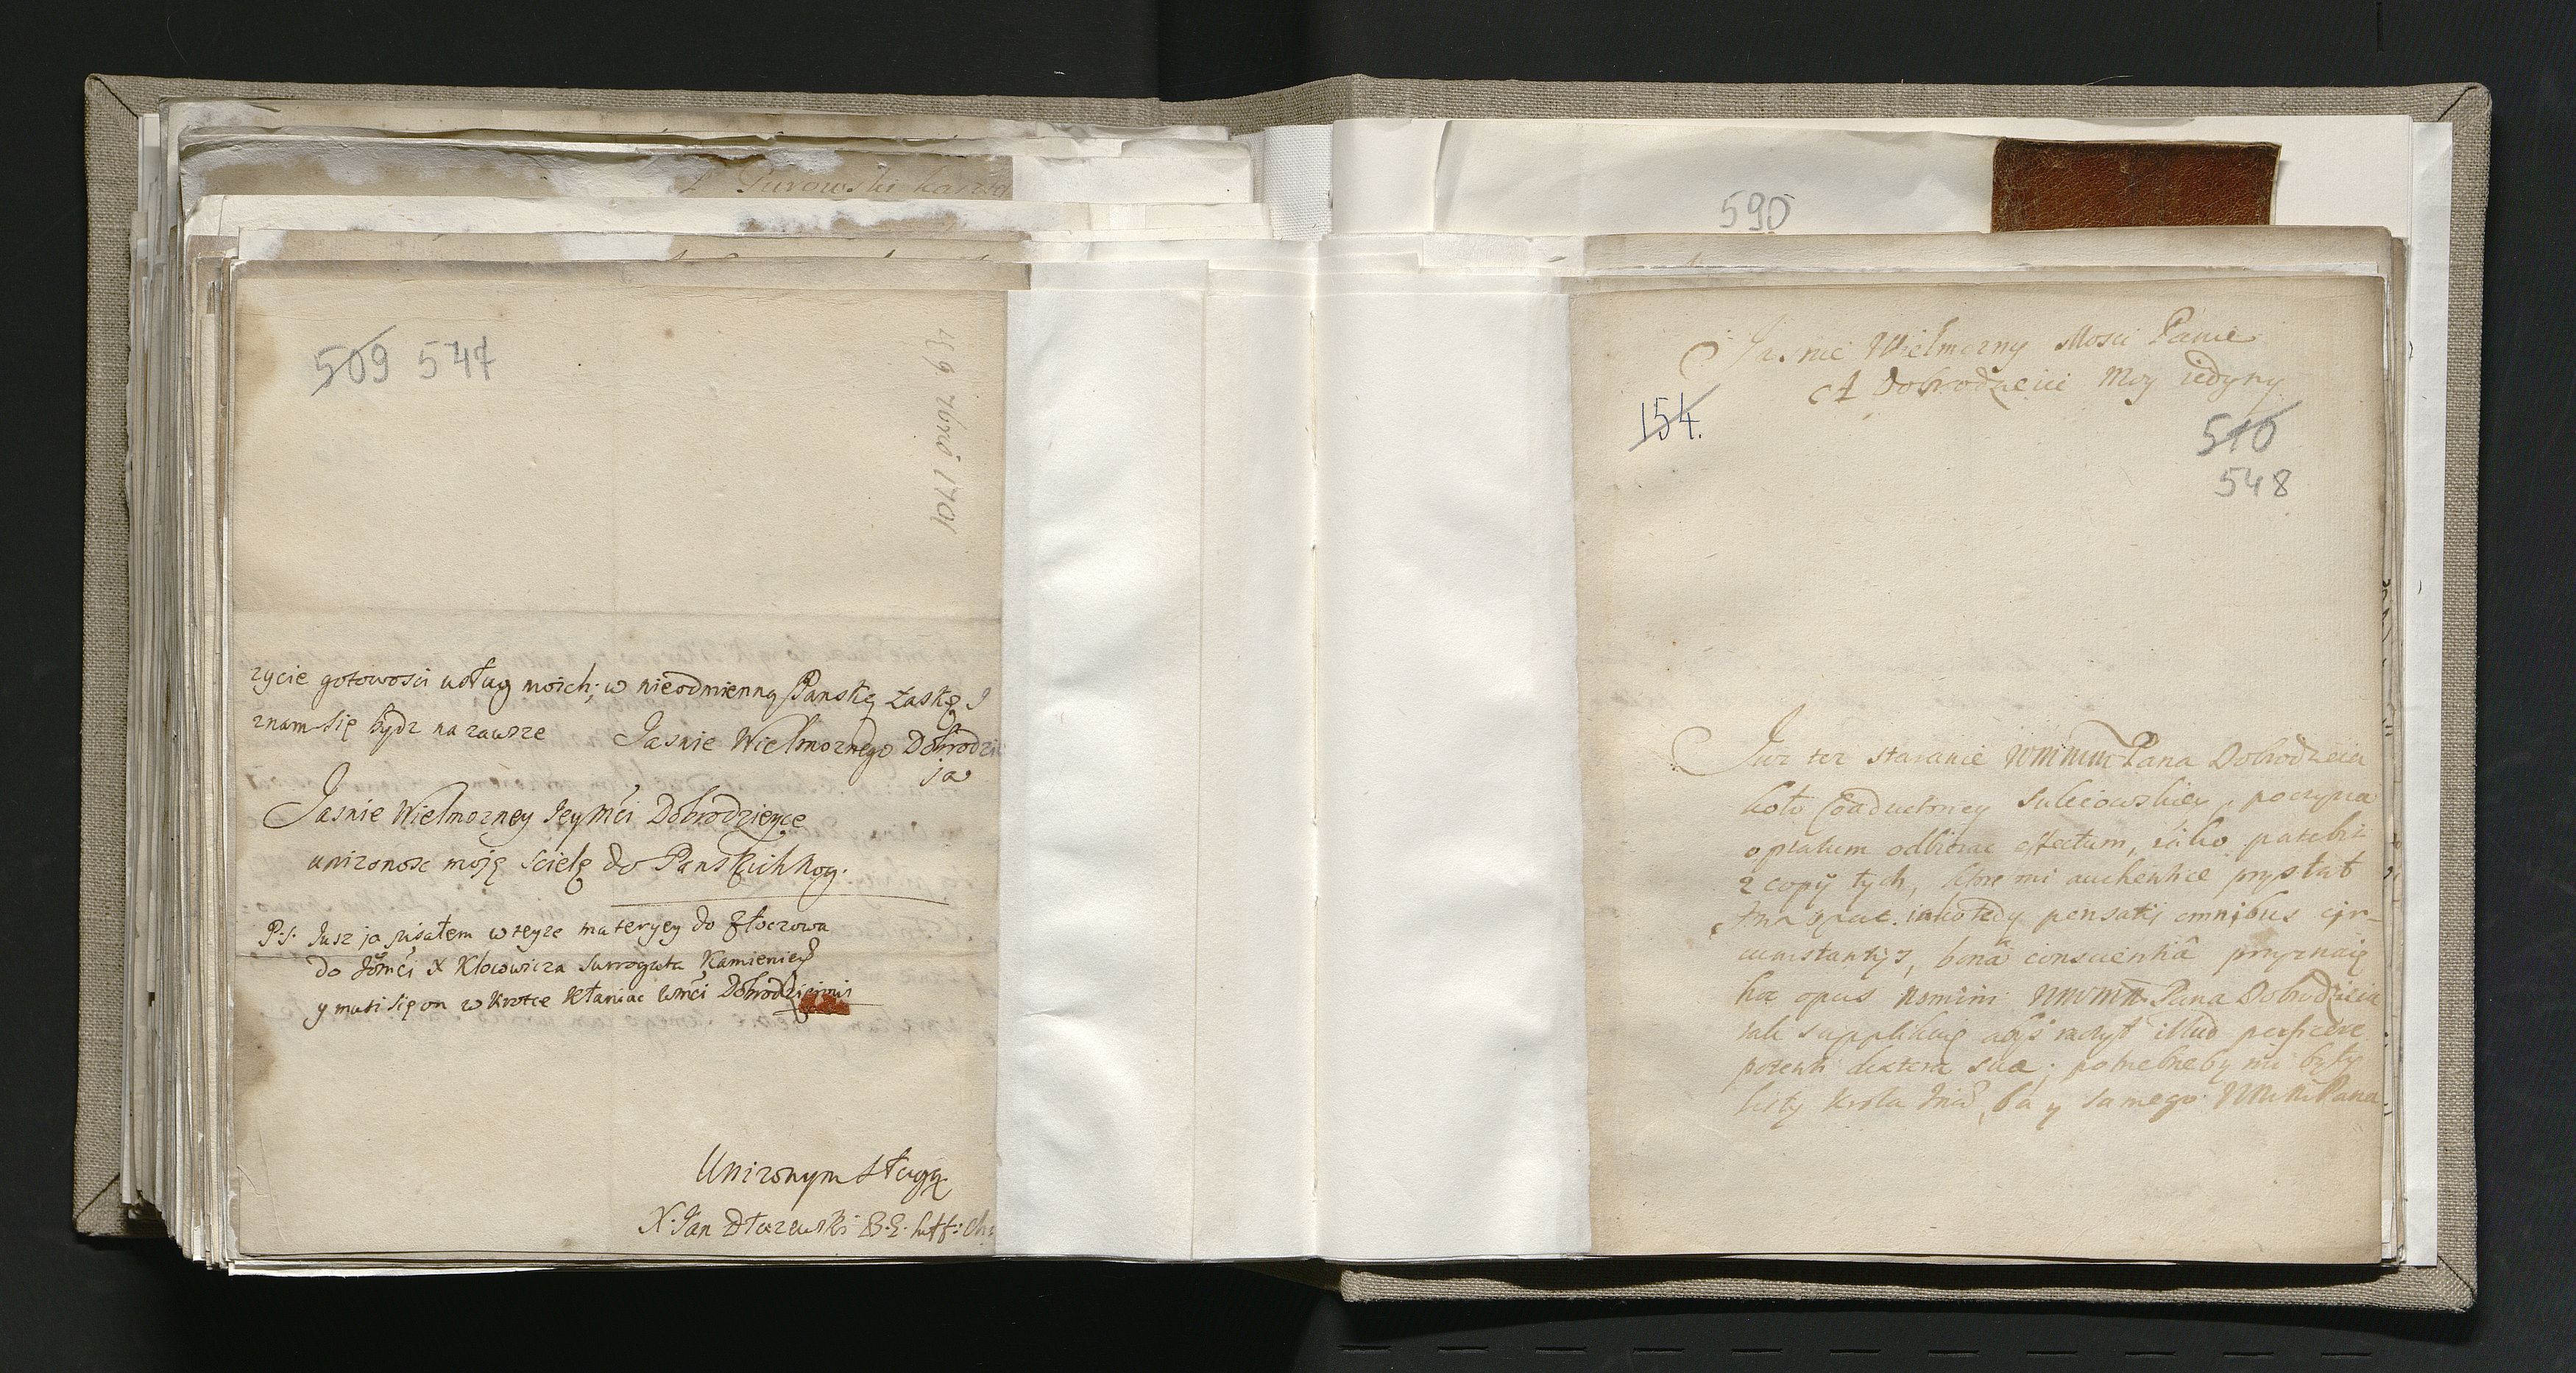 P Gurowski
509 547
1701
życie gotowosci usług moich; w nieodmienną Panską Łaskę
znam się bydz na zawsze Jasnie Wielmoznego Dobrodzie
ja
Jasnie Wielmozney Jey Mći Dobrodzieyce
unizonosc moję scielę do Panskich Nog.
P.S. Jusz ja pisałem w teyze materyey do Złoczowa
do Jomći X Kłocowicza Surrogata Kamieniecg
y musi się on w krotce kłaniac wmći Dobrodzieiowi
Unizonym Sługą
X. Jan Dłuzewski
590
Jasnie Wielmozny Mosci Panie
A Dobrodzieiu Moy iedyny
154.
510
548
Juz tez staranie WMMM Pana Dobrodzieia
koło Coadiutoriey Suleiowskiey, poczyna
optatum odbierac effectum, iako patebit
z copÿ tych, ktore mi authentice przysłał
iako tedy pensatis omnibus cir-
cumstantÿs, bonâ conscientiâ przyznaię
hoc opus nomini WMMM Pana Dobrodzieia
tak supplikuię abyś raczył illud perficere
potenti dextera sua; potrzebneby mi były
listy Krola Jmći, ba y samego WMM Pana